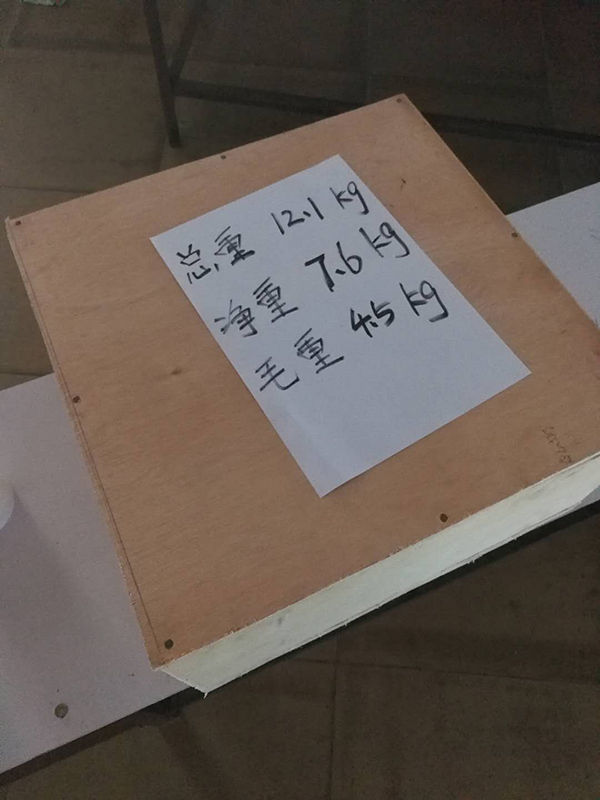 总重 12.1 kg
净重 7.6 kg
毛重 4.5 kg